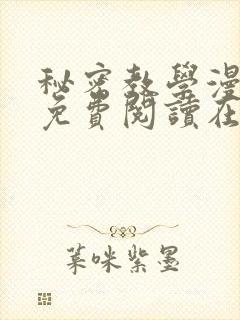 秘密教學漫
免費閱讀在
葉咪紫墨